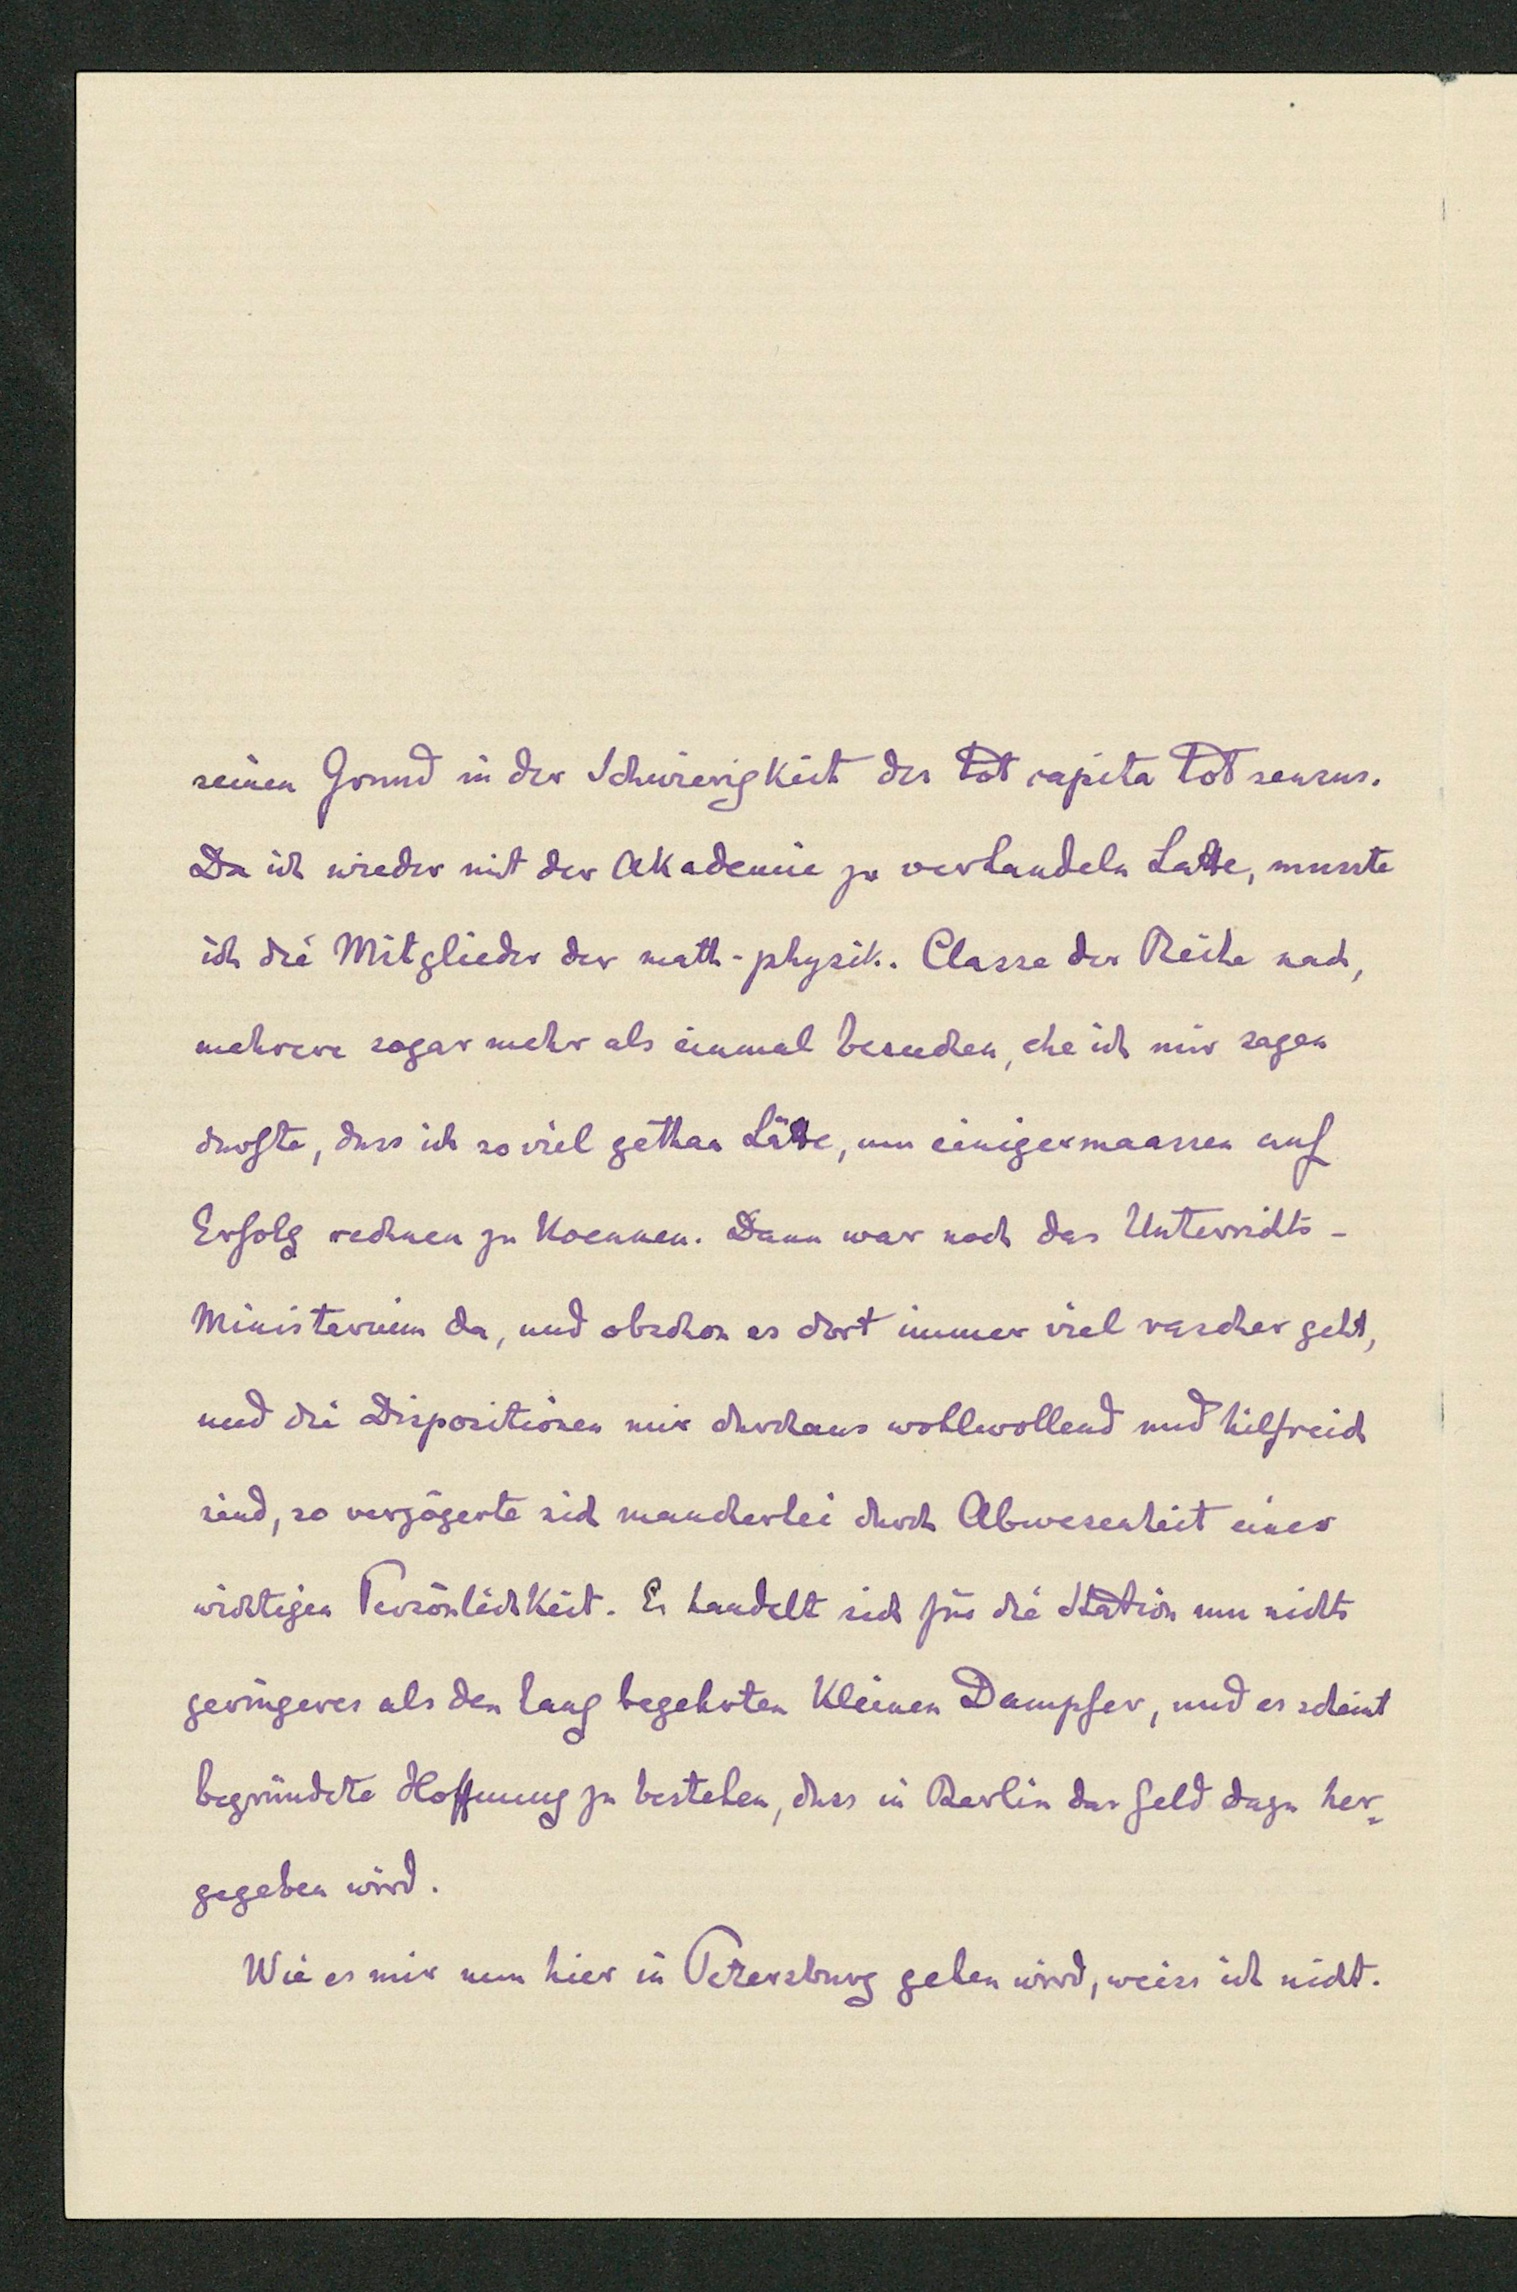 seinen Grund in der Schwierigkeit des tot capita tot sensus.
Da ich wieder mit der Akademie zu verhandeln hatte, musste
ich die Mitglieder der math-physik. Classe der Reihe nach,
mehrere sogar mehr als einmal besuchen, ehe ich mir sagen
durfte, dass ich so viel gethan hätte, um einigermaassen auf
Erfolg rechnen zu koennen. Dann war noch das Unterrichts-
Ministerium da, und obschon es dort immer viel rascher geht,
und die Dispositionen mir durchaus wohlwollend und hilfreich
sind, so verzögerte sich mancherlei durch Abwesenheit einer
wichtigen Persönlichkeit. Es handelt sich für die Station um nichts
geringeres als den lang begehrten kleinen Dampfer, und es scheint
begründete Hoffnung zu bestehen, dass in Berlin das Geld dazu her-
gegeben wird.
Wie es mir nun hier in Petersburg gehen wird, weiss ich nicht.